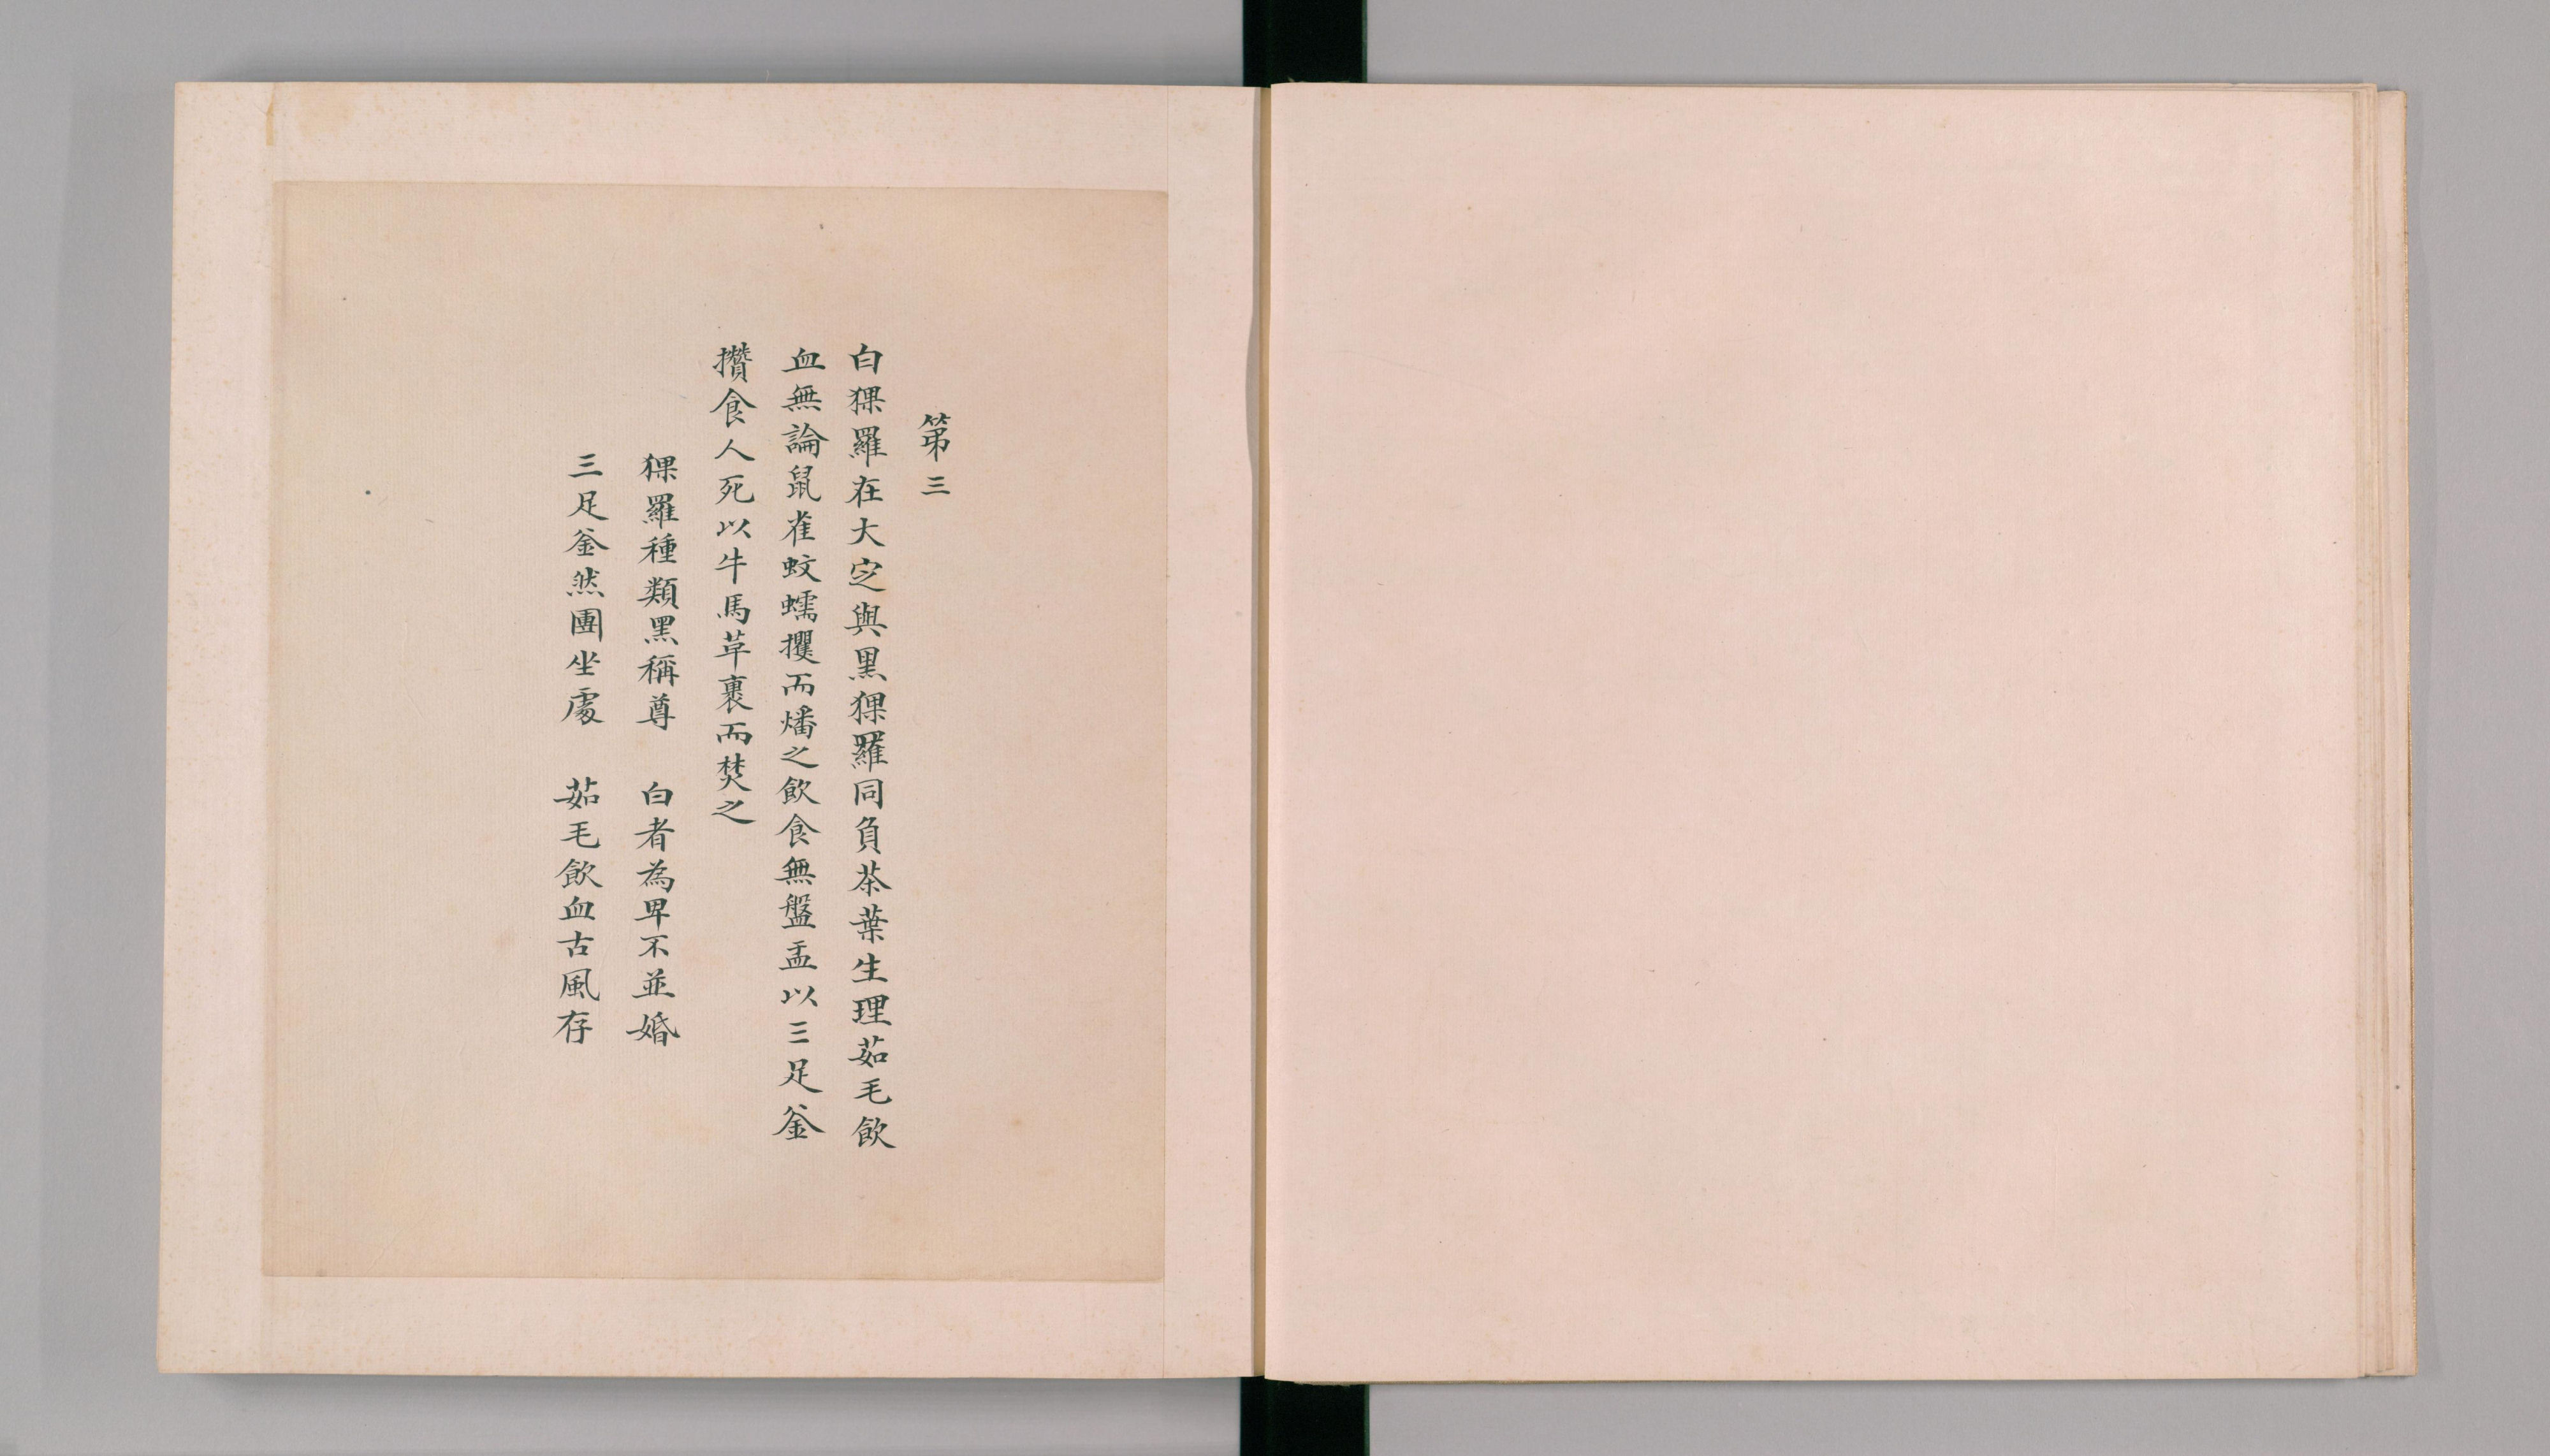 第三
白猓羅在大定與黒猓羅同負茶葉生理茹毛飲
血無論鼠雀蚊蠕攫而燔之飲食無盤盂以三足釜
攢食人死以牛馬草裹而焚之
猓羅種類黑稱尊　白者為卑不並婚
三足釜然團坐處　茹毛飲血古風存